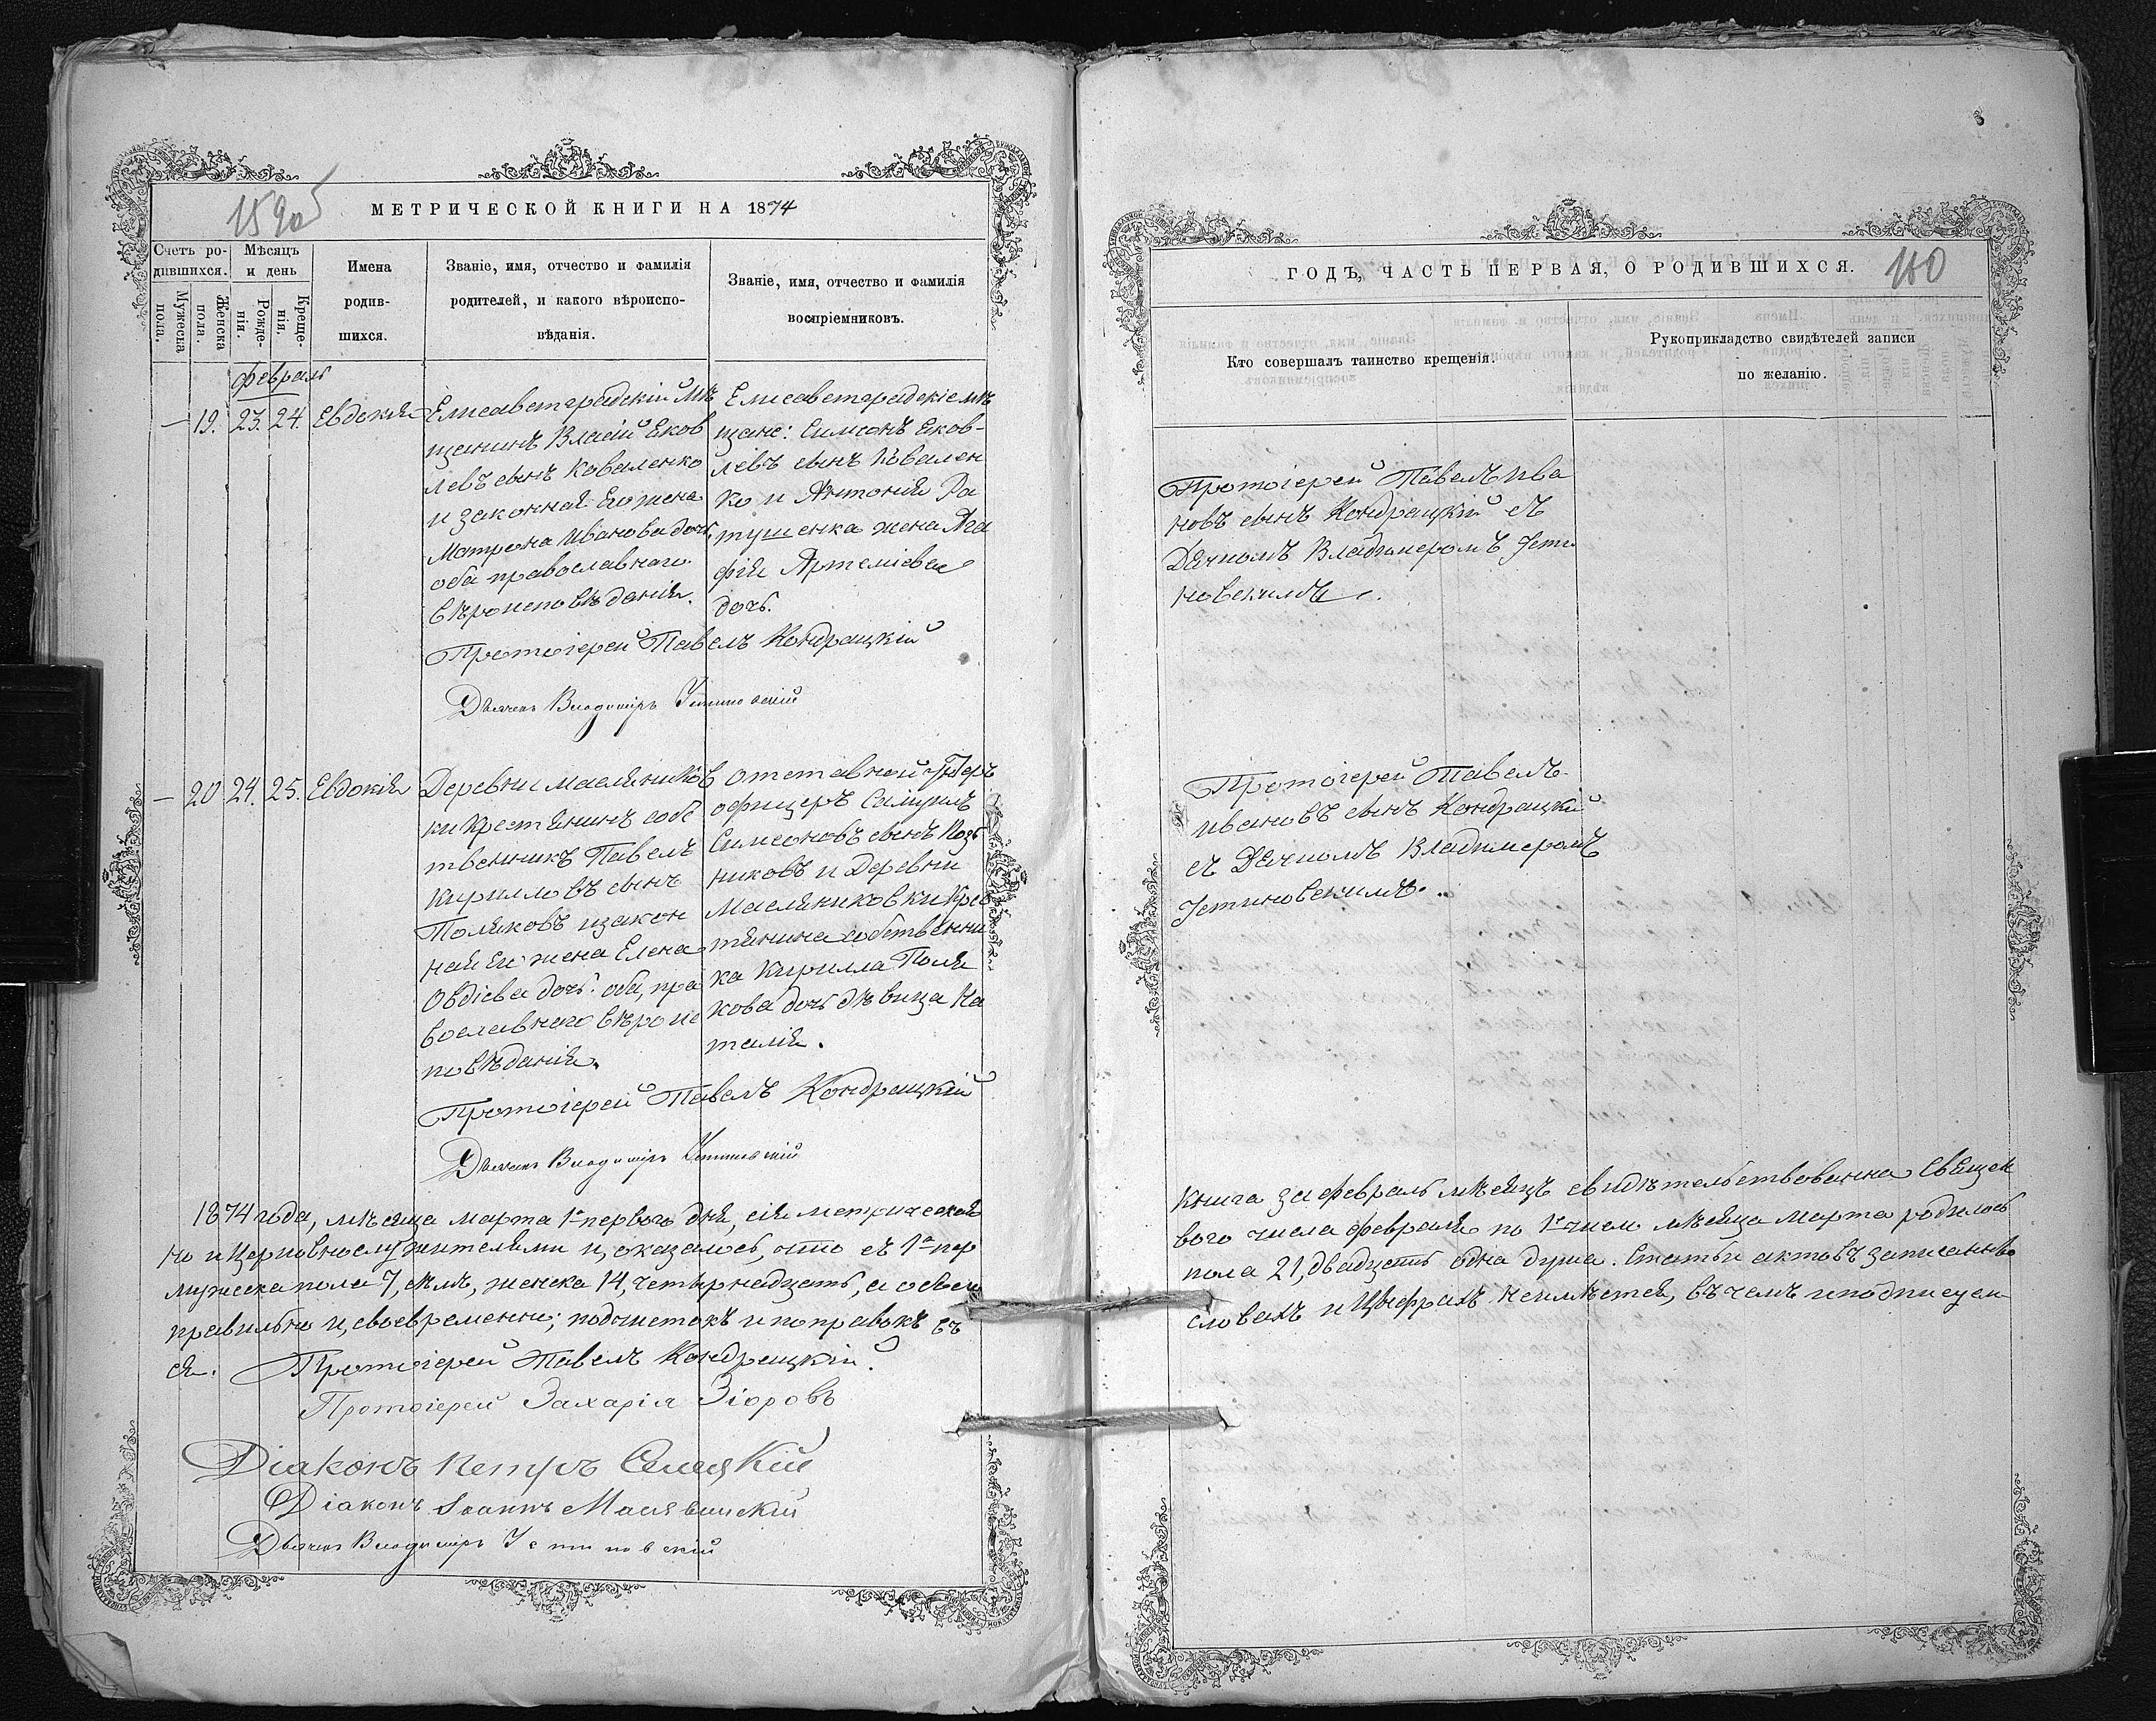 МЕТРИЧЕСКОЙ КНИГИ НА 1874
Счетъ ро-
дившихся.
Мужеска
пола.
Женска
пола.
Мѣсяцъ
и день
Рожде-
нія.
Креще-
нія.
Имена
родив-
шихся.
Званіе, имя, отчество и фамилія
родителей, и какого вѣроиспо-
вѣданія.
Званіе, имя, отчество и фамилія
воспріемниковъ.
февраль
— 19. 23. 24. Евдокія
Елисаветградскій мѣ
щанинъ Власій Яков
левъ сынъ Коваленко
и законная его жена
Матрона Иванова дочь,
оба православнаго
вѣроисповѣданія.
Елисаветградскіе мѣ
щане: Симеонъ Яков-
левъ сынъ Ковален
ко и Антонія Ра
тушенка жена Ага
фія Артеміева
дочь.
Протоіерей Павелъ Кондрацкій
Дьячекъ Владиміръ Устиновскій
— 20 24. 25. Евдокія
Деревни Масляников
ки Крестьянинъ собс
твенникъ Павелъ
Кириловъ сынъ
Поляковъ и закон
ная его жена Елена
Овдіева дочь: оба, пра
вославнаго вѣроис
повѣданія.
отставной Унтеръ
офицеръ Самуилъ
Симеоновъ сынъ
никовъ и Деревни
Масляниковки Крес
тянина собственни
ка Кирилла Поля
кова дочь дѣвица На
талія.
Протоіерей Павелъ Кондрацкій
Дьячекъ Владиміръ Устиновскій
1874 года, мѣсяца марта 1го перваго дня, сія метрическая
но и церковнослужителями и, оказалось, что съ 1го пер
мужеска пола 7, семь, женска 14, четырнадцать, а обоего
правильно и, своевременно; подчистокъ и поправокъ въ
ся. Протоіерей Павелъ Кондрацкій.
Протоіерей Захарія Зіоровъ
Діаконъ Петръ Селецкій
Діаконъ Іоаннъ
Дьячекъ Владиміръ Устиновскій
ГОДЪ, ЧАСТЬ ПЕРВАЯ, О РОДИВШИХСЯ.
Кто совершалъ таинство крещенія.
Рукоприкладство свидѣтелей записи
по желанію.
Протоіерей Павелъ Ива
новъ сынъ Кондрацкій съ
Дячкомъ Владимеромъ Усти
новскимъ.
Протоіерей Павелъ
Ивановъ сынъ Кондрацкій
съ Дячкомъ Владимеромъ
Устиновскимъ.
Книга за февраль мѣсяцъ свидѣтельствованна священ
ваго числа февраля по 1е число мѣсяца марта родилось
пола 21, двадцать одна душа. Статьи актовъ записанны
словахъ и Цыфрахъ неимѣется, въ чемъ и подписуем